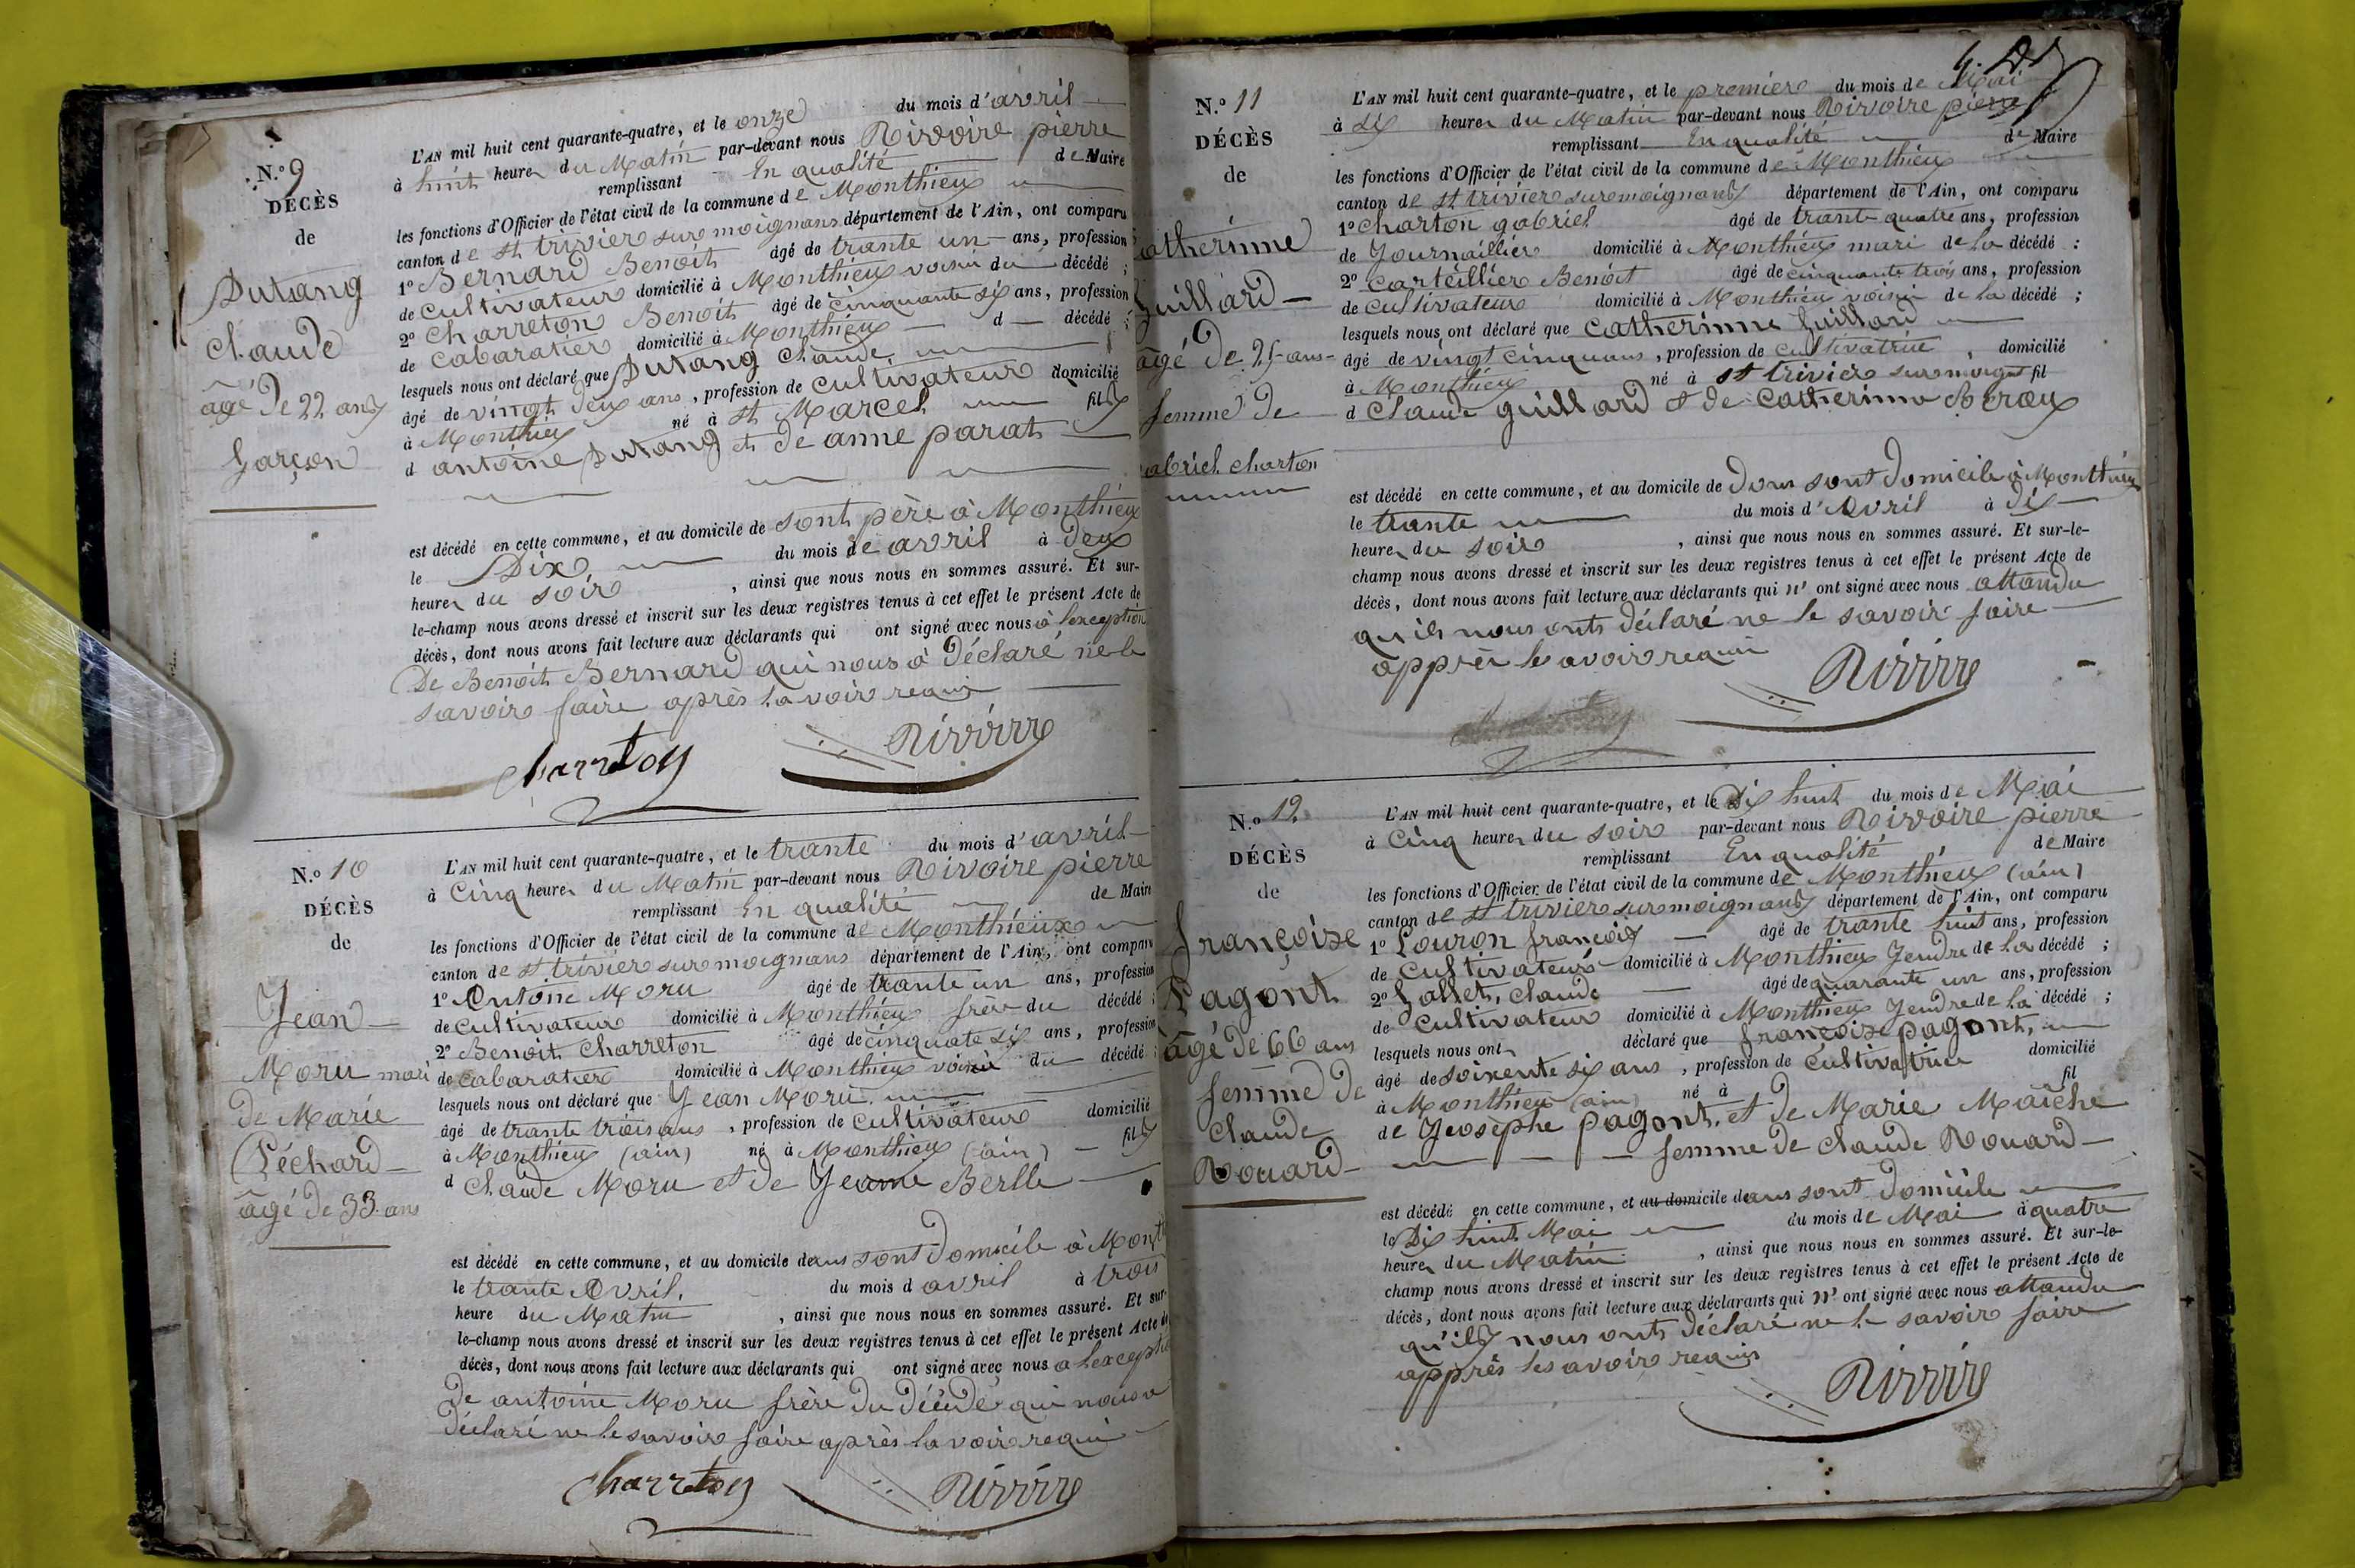 N.° 9
DÉCÈS
de
Dutang
Claude
âgé de 22 ans
Garçon
L'AN mil huit cent quarante-quatre, et le onze du mois d'avril
à huit heures du Matin par-devant nous Rivoire pierre
remplissant En qualité de Maire
les fonctions d'Officier de l'état civil de la commune de Monthieux
canton de St trivier sur moignans département de l'Ain, ont comparu
1° Bernard Benoit âgé de trante un ans, profession
de Cultivateur domicilié à Monthieux voisin du décédé ;
2° Charreton Benoit âgé de cinquante six ans, profession
de Cabaratier domicilié à Monthieux d décédé ;
lesquels nous ont déclaré que Dutang Claude
âgé de vingt deux ans, profession de Cultivateur domicilié
à Monthieux né à St Marcel fils
d antoine Dutang et de anne parat
est décédé en cette commune, et au domicile de sont père à Monthieux
le Dix du mois de avril à deux
heures du soir, ainsi que nous nous en sommes assuré. Et sur-
le-champ nous avons dressé et inscrit sur les deux registres tenus à cet effet le présent Acte de
décès, dont nous avons fait lecture aux déclarants qui ont signé avec nous à lexception
De Benoit Bernard qui nous à déclaré ne le
savoir faire après lavoir requi
charreton Rivoire
N.° 10
DÉCÈS
de
Jean
Moru mari
de Marie
Péchard
âgé de 33 ans
L'AN mil huit cent quarante-quatre, et le trante du mois d'avril
à Cinq heures du Matin par-devant nous Rivoire pierre
remplissant En qualité de Maire
les fonctions d'Officier de l'état civil de la commune de Monthieux
canton de St trivier sur moignans département de l'Ain, ont comparu
1° Antoine Moru âgé de trante un ans, profession
de Cultivateur domicilié à Monthieux frère du décédé ;
2° Benoit Charreton âgé de cinquate six ans, profession
de Cabaratier domicilié à Monthieux voisin du décédé ;
lesquels nous ont déclaré que Jean Moru
âgé de trante trois ans, profession de Cultivateur domicilié
à Monthieux (ain) né à Monthieux (ain) fils
d Claude Moru et de Jeanne Berlle
est décédé en cette commune, et au domicile dans sont Domicile à Mont
le trante Avril. du mois d avril à trois
heure du Matin, ainsi que nous nous en sommes assuré. Et sur-
le-champ nous avons dressé et inscrit sur les deux registres tenus à cet effet le présent Acte de
décès, dont nous avons fait lecture aux déclarants qui ont signé avec nous a lexception
de antoine Moru frère Du décédé qui nous a
déclaré ne le savoir faire après lavoir requi
charreton Rivoire
N.° 11
DÉCÈS
de
atherinne
Guillard
âgé de 25 ans
femme de
abriel charton
L'AN mil huit cent quarante-quatre, et le premier du mois de Mai
à Six heures du Matin par-devant nous Rivoire pierre
remplissant En qualité de Maire
les fonctions d'Officier de l'état civil de la commune de Monthieux
canton de St trivier sur moignans département de l'Ain, ont comparu
1° Charton gabriel âgé de trante quatre ans, profession
de Journaillier domicilié à Monthieux mari de la décédé ;
2° Carteillier Benoit âgé de cinquante trois ans, profession
de cultivateur domicilié à Monthieux voisin de la décédé ;
lesquels nous ont déclaré que Catherinne Guillard
âgé de vingt cinquans, profession de cultivatrice, domicilié
à Monthieux né à St trivier sur moignt fil
d Claude guillard et de Catherinne
est décédé en cette commune, et au domicile de Dans sont Domicile à Monthieux
le trante du mois d'Avril à dix
heures du soir, ainsi que nous nous en sommes assuré. Et sur-le-
champ nous avons dressé et inscrit sur les deux registres tenus à cet effet le présent Acte de
décès, dont nous avons fait lecture aux déclarants qui n' ont signé avec nous attandu
quils nous onts déclaré ne le savoir faire
apprés les avoir requi
Rivoire
N.° 12
DÉCÈS
de
françoise
Pagont
âgé de 66 ans
femme de
Claude
Rouard
L'AN mil huit cent quarante-quatre, et le Dix huit du mois de Mai
à Cinq heures du soir par-devant nous Rivoire pierre
remplissant En qualité de Maire
les fonctions d'Officier de l'état civil de la commune de Monthieux (ain)
canton de St trivier sur moignans département de l'Ain, ont comparu
1° Louron françois âgé de trante huit ans, profession
de Cultivateur domicilié à Monthieux Jendre de la décédé ;
2° Gallet, Claude âgé de quarante un ans, profession
de Cultivateur domicilié à Monthieux Jendre de la décédé ;
lesquels nous ont déclaré que françoise pagont,
âgé de soixente six ans, profession de Cultivatrice domicilié
à Monthieux (ain) né à fil
de Jeosephe pagont, et de Marie Maiche
femme de claude Rouard
est décédé en cette commune, et au domicile dans sont Domicile
le Dix huit Mai du mois de Mai à quatre
heures du Matin, ainsi que nous nous en sommes assuré. Et sur-le-
champ nous avons dressé et inscrit sur les deux registres tenus à cet effet le présent Acte de
décès, dont nous avons fait lecture aux déclarants qui n' ont signé avec nous attandu
qu'ils nous onts déclaré ne le savoir faire
apprés les avoir requis
Rivoire